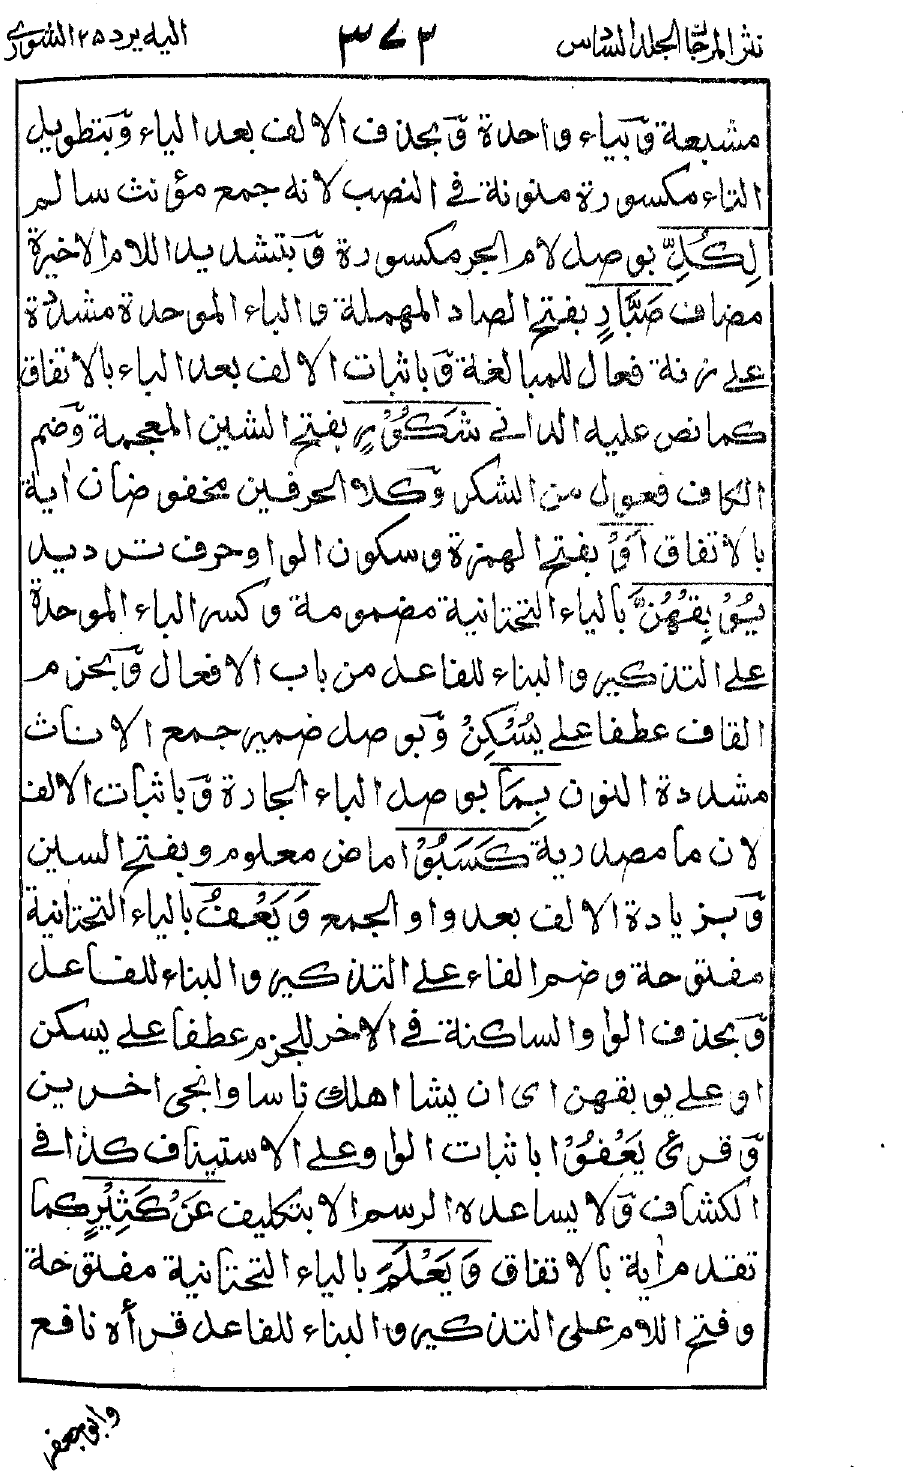 نثر المرجان الجلد السادس ٣٧٢ اليه يرد ٢٥ الشورى
مشبعة وبياء واحدة وبحذف الالف بعد الياء وبتطويل
التاء مكسورة منونة في النصب لانه جمع مؤنث سالم
لِكُلِّ بوصل لام الجر مكسورة وبتشديد اللام الاخيرة
مضاف صَبَّارٍ بفتح الصاد المهملة والباء الموحدة مشددة
على زنة فعال للمبالغة وباثبات الالف بعد الباء بالاتفاق
كما نص عليه الداني شَكُوْرٍ بفتح الشين المعجمة وضم
الكاف فعول من الشكر وكلا الحرفين مخفوضان اية
بالاتفاق اَوْ بفتح الهمزة وسكون الواو حرف ترديد
يُوْبِقْهُنَّ بالياء التحتانية مضمومة وكسر الباء الموحدة
على التذكير والبناء للفاعل من باب الافعال وبجزم
القاف عطفا على يُسْكِنْ وبوصل ضمير جمع الاناث
مشددة النون بِمَا بوصل الباء الجارة وباثبات الالف
لان ما مصدرية كَسَبُوْا ماض معلوم وبفتح السين
وبزيادة الالف بعد واو الجمع وَيَعْفُ بالياء التحتانية
مفتوحة وضم الفاء على التذكير والبناء للفاعل
وبحذف الواو الساكنة في الاخر للجزم عطفا على يسكن
او على يوبقهن اى ان يشا اهلك ناسا وانجى اخرين
وقرئ يَعْفُوْا باثبات الواو على الاستيناف كذا في
الكشاف ولا يساعده الرسم الا بتكليف عَنْ كَثِيْرٍ كما
تقدم اية بالاتفاق وَيَعْلَمَ بالياء التحتانية مفتوحة
وفتح اللام على التذكير والبناء للفاعل قرأه نافع
وابو جعفر